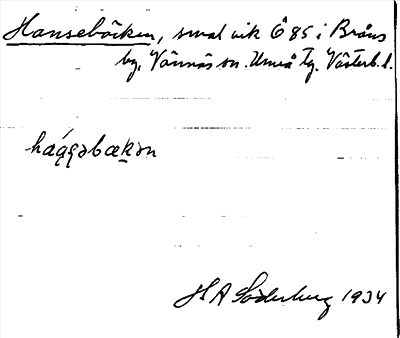 Hanseböcken, smal vik Ö 85 i Bråns
by, Vännäs sn. Umeå tg. Västerb. l.
háꞔꞔəbækən
H A Söderberg 1934